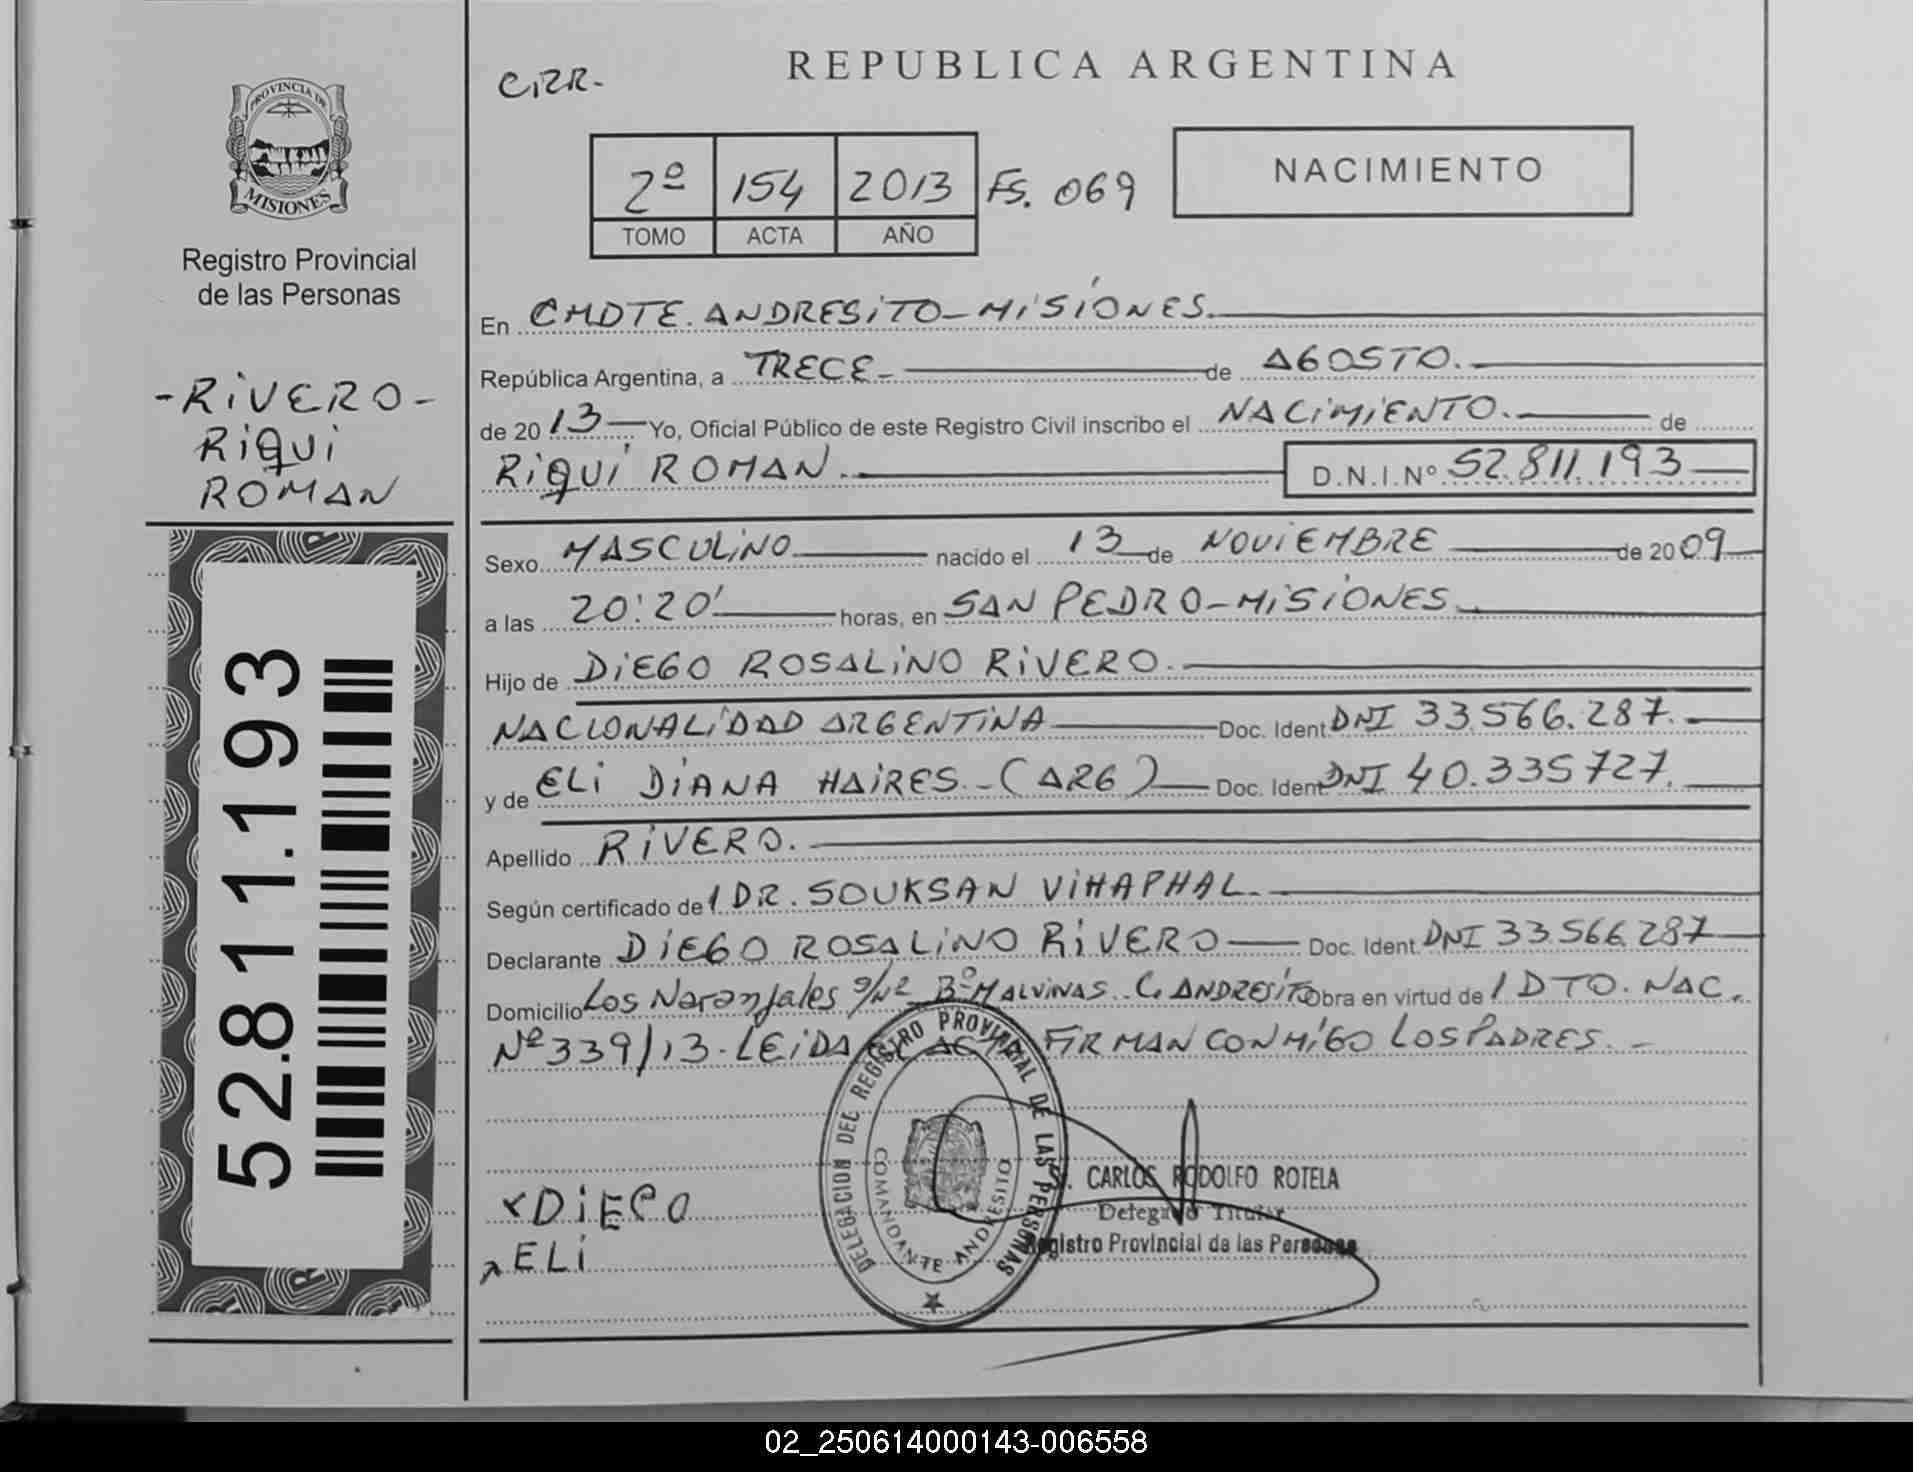 REPUBLICA ARGENTINA
C.RR.-
PROVINCIA DE
MISIONES
Registro Provincial
de las Personas
-RIVERO-
RIQUI
ROMAN
52.811.193
2º 154 2013 FS. 069
TOMO ACTA AÑO
NACIMIENTO
En CMDTE. ANDRESITO-MISIONES.
República Argentina, a TRECE- de AGOSTO.
de 2013 Yo, Oficial Público de este Registro Civil inscribo el NACIMIENTO. de
RIQUI ROMAN. D.N.I.Nº 52.811.193
Sexo MASCULINO nacido el 13 de NOVIEMBRE de 2009
a las 20:20' horas, en SAN PEDRO-MISIONES
Hijo de DIEGO ROSALINO RIVERO.
NACIONALIDAD ARGENTINA Doc. Ident. DNI 33.566.287.
y de ELI DIANA HAIRES.-(ARG) Doc. Ident. DNI 40.335727.
Apellido RIVERO.
Según certificado de 1 DR. SOUKSAN VIHAPHAL.
Declarante DIEGO ROSALINO RIVERO Doc. Ident. DNI 33.566.287
Domicilio Los Naranjales s/nº Bº MALVINAS. C. ANDRESITO Obra en virtud de 1 DTO. NAC.
Nº 339/13. LEIDA FIRMAN CONMIGO LOS PADRES.-
DELEGACION DEL REGISTRO PROVINCIAL DE LAS PERSONAS
COMANDANTE ANDRESITO
DIEGO
ELI
CARLOS RODOLFO ROTELA
Delegado Titular
Registro Provincial de las Personas
02_250614000143-006558